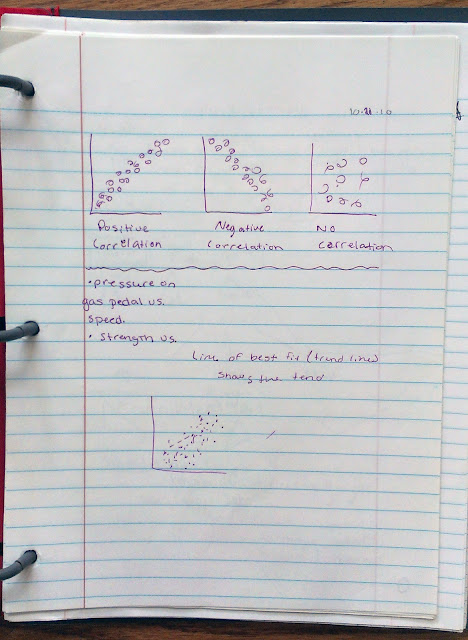 10.21.10
Positive Correlation
Negative Correlation
No correlation
• pressure on
gas pedal vs.
speed.
• strength vs.
Line of best fit (trend line)
shows the tend